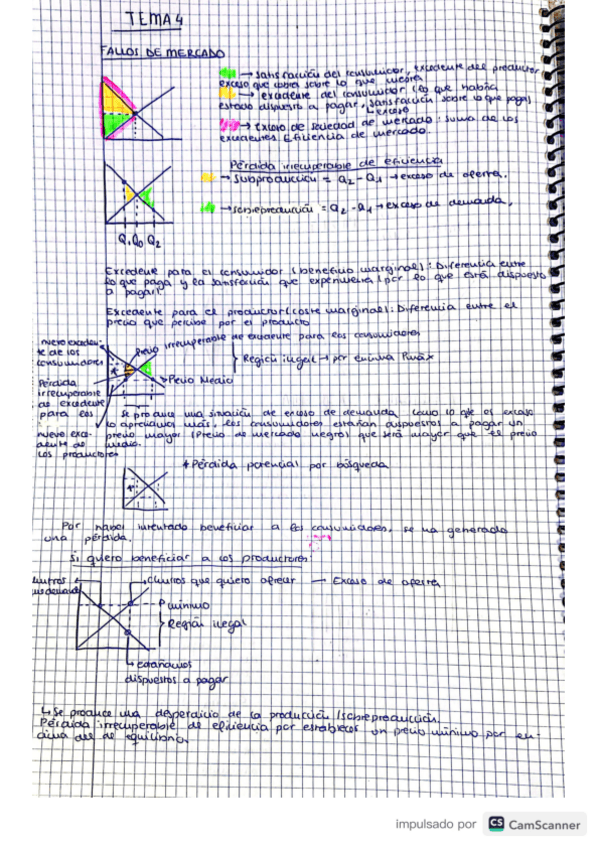 TEMA 4
FALLOS DE MERCADO
→ satisfacción del consumidor, excedente del productor
exceso que cobra sobre lo que
→ excedente del consumidor (lo que habría
estado dispuesto a pagar, satisfacción sobre lo que pagas
exceso
→ Exceso de sociedad de mercado: suma de los
excedentes Eficiencia de mercado.
Pérdida irrecuperable de eficiencia
→ Subproducción = Q2 - Q1 → exceso de oferta.
→ sobreproducción = Q2 - Q1 → exceso de demanda.
Q1 Q0 Q2
Excedente para el consumidor (beneficio marginal): Diferencia entre
lo que paga y la satisfacción que experimenta (por lo que está dispuesto
a pagar)
Excedente para el productor (coste marginal): Diferencia entre el
precio que percibe por el producto
nuevo exceden-
te de los
consumidores
Pérdida irrecuperable de excedente para los consumidores
Región ilegal → por encima Pmáx
Precio Medio
Pérdida
irrecuperable
de excedente
para los
nuevo exce-
dente de
los productores
Se produce una situación de exceso de demanda, como lo que es escaso
lo apreciamos más, los consumidores estarían dispuestos a pagar un
precio mayor (Precio de mercado negro) que será mayor que el precio
+ Pérdida potencial por búsqueda
Por haber intentado beneficiar a los consumidores, se ha generado
una pérdida.
Si quiero beneficiar a los productores:
cuántos que quiero ofrecer → Exceso de oferta
P mínimo
Región ilegal
estaríamos
dispuestos a pagar
↳ Se produce una desperdicio de la producción/sobreproducción.
Pérdida irrecuperable de eficiencia por establecer un precio mínimo por en-
cima del de equilibrio.
impulsado por CS CamScanner